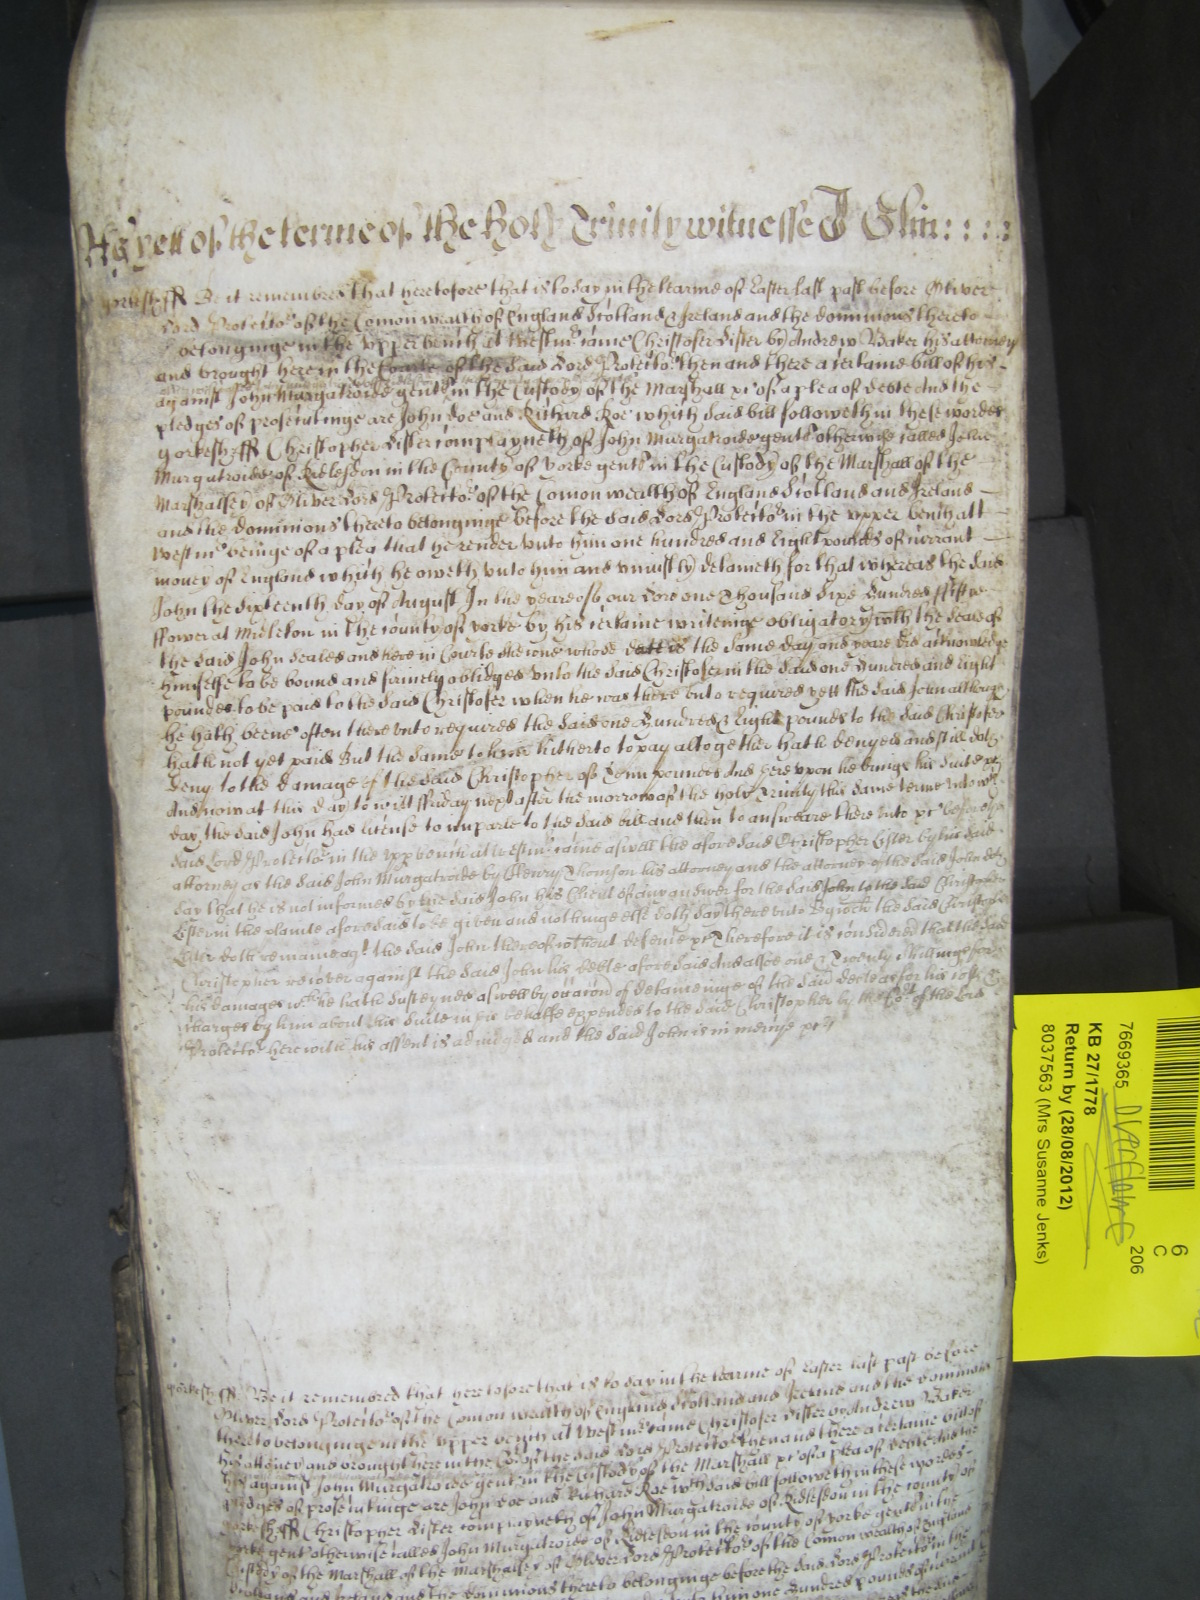 As yett of the terme of the holy Trinity witnesse J Glin::::
Yorkesh ff Be it remembred that heretofore that is to day in the tearme of Easter last past before Oliver
Lord Protector of the Comon wealth of England Scotland & Ireland and the dominions thereto
belonginge in the upper bench at Westmr came Christofer Lister by Andrew Baker his attorney
and brought here in the Courte of the said Lord Protector then and there a certaine bill of his
against John Murgatroide gentt in the Custody of the Marshall &c of a plea of debte And the
pledges of prosecutinge are John Doe and Richard Roe which said bill followeth in these wordes
Yorkesh ff Christopher Lister complayneth of John Murgatroide gentt otherwise called John
Murgatroide of Ridlesdon in the County of Yorke gentt in the Custody of the Marshall of the
Marshallsey of Oliver Lord Protector of the Comon wealth of England Scotland and Ireland
and the dominions thereto belonginge before the said Lord Protector in the upper bench att
Westmr beinge of a plea that he render unto him one hundred and Eight pounds of currant
money of England which he oweth unto him and uniustly detaineth for that whereas the said
John the sixteenth day of August In the yeare of our Lord one Thousand Sixe Hundred fiftie
ffower at Midleton in the county of Yorke by his certaine writeinge obligatory with the seale of
the said John sealed and here in Courte shewne whose date is the same day and yeare did acknowledge
himselfe to be bound and firmely obliged unto the said Christofer in the said one Hundred and Eight
poundes to be paid to the said Christofer when he was there unto required yett the said John although
he hath beene often there unto required the said one Hundred & Eight pounds to the said Christofer
hath not yet paid But the same to him hitherto to pay altogether hath denyed and still doth
deny to the damage of the said Christopher of Tenn pounds And hereupon he brings his suite &c
And now at this day to witt ffriday next after the morrow of the holy Trinity this same terme unto wch
day the said John had license to imparle to the said bill and then to answeare there unto &c before the
said Lord Protector in the upp bench at Westmr came aswell the aforesaid Christopher Lister by his said
attorney as the said John Murgatroide by Henry Thomson his attorney and the attorney of the said John doth
say that he is not informed by the said John his Client of any answer for the said John to the said Christopher
Lister in the plainte aforesaid to be given and nothinge else doth say there unto By wch the said Christopher
Lister doth remaine agt the said John thereof without defence &c Therefore it is considered that the said
Christopher recover against the said John his debte aforesaid And alsoe one & Twenty shillings for
his damages wch he hath susteyned aswell by occasion of detaineinge of the said debte as for his costs &
charges by him about his suite in his behalfe expended to the said Christopher by the Cort of the Lord
Protector here with his assent is adiudged and the said John is in mercye &c
Yorkesh ff Be it remembred that heretofore that is to day in the tearme of Easter last past before
Oliver Lord Protector of the Comon wealth of England Scotland and Ireland and the dominions
thereto belonginge in the upper bench at Westmr came Christofer Lister by Andrew Baker
his attorney and brought here in the Cort of the said Lord Protector then and there a certaine bill of
his against John Murgatroide gent in the Custody of the Marshall &c of a plea of debte And the
pledges of prosecutinge are John Doe and Richard Roe wch said bill followeth in these wordes
Yorkesh ff Christopher Lister complayneth of John Murgatroide of Ridlesdon in the county of
Yorke gent otherwise called John Murgatroide of Ridlesdon in the county of Yorke gentt in the
Custody of the Marshall of the Marshallsey of Oliver Lord Protector of the Comon wealth of England
Scotland and Ireland and the dominions thereto belonginge before the said Lord Protector in the
unto him one Hundred pounds of currant
7669365
206
6
C
KB 27/1778
Return by (28/08/2012)
8037563 (Mrs Susanne Jenks)